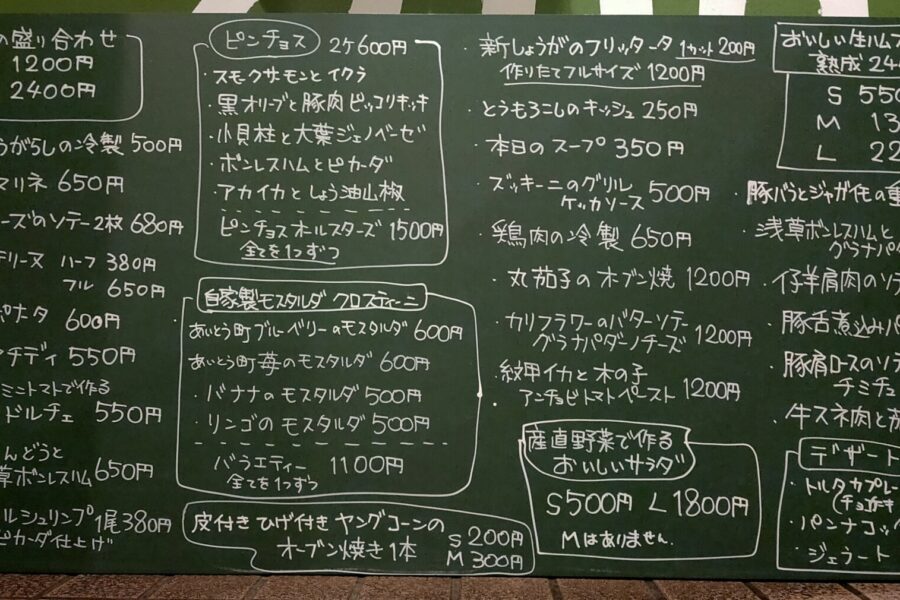 の盛り合わせ
1200円
2400円
うがらしの冷製 500円
マリネ 650円
ーズのソテー2枚 680円
テリーヌ ハーフ 380円
フル 650円
ポナタ 600円
アチディ 550円
ミニトマトで作る
ドルチェ 550円
んどうと
草ボンレスハム 650円
ルシュリンプ1尾380円
ピカーダ仕上げ
ピンチョス 2ケ600円
・スモークサーモンとイクラ
・黒オリーブと豚肉ピッコリキッキ
・小貝柱と大葉ジェノベーゼ
・ボンレスハムとピカーダ
・アカイカとしょう油山椒
ピンチョスオールスターズ 1500円
全てを1つずつ
自家製モスタルダ クロスティーニ
あいとう町ブルーベリーのモスタルダ 600円
あいとう町苺のモスタルダ 600円
・バナナのモスタルダ 500円
・リンゴのモスタルダ 500円
バラエティー 1100円
全てを1つずつ
皮付きひげ付きヤングコーンの
オーブン焼き1本 S 200円
M 300円
・新しょうがのフリッタータ 1カット200円
作りたてフルサイズ 1200円
・とうもろこしのキッシュ 250円
・本日のスープ 350円
・ズッキーニのグリル
ケッカソース 500円
・鶏肉の冷製 650円
・丸茄子のオーブン焼 1200円
・カリフラワーのバターソテー
グラナパダーノチーズ 1200円
・紋甲イカと木の子
アンチョビトマトペースト 1200円
産直野菜で作る
おいしいサラダ
S500円 L1800円
Mはありません
おいしい生ハム
熟成 24
S 550
M 13
L 22
・豚バラとジャガ芋の重
・浅草ボンレスハムと
グラナパダ
・仔羊肩肉のソテ
・豚舌煮込み
・豚肩ロースのソテ
チミチュ
・牛スネ肉と
デザート
・トルタカプレー
・パンナコッ
・ジェラート